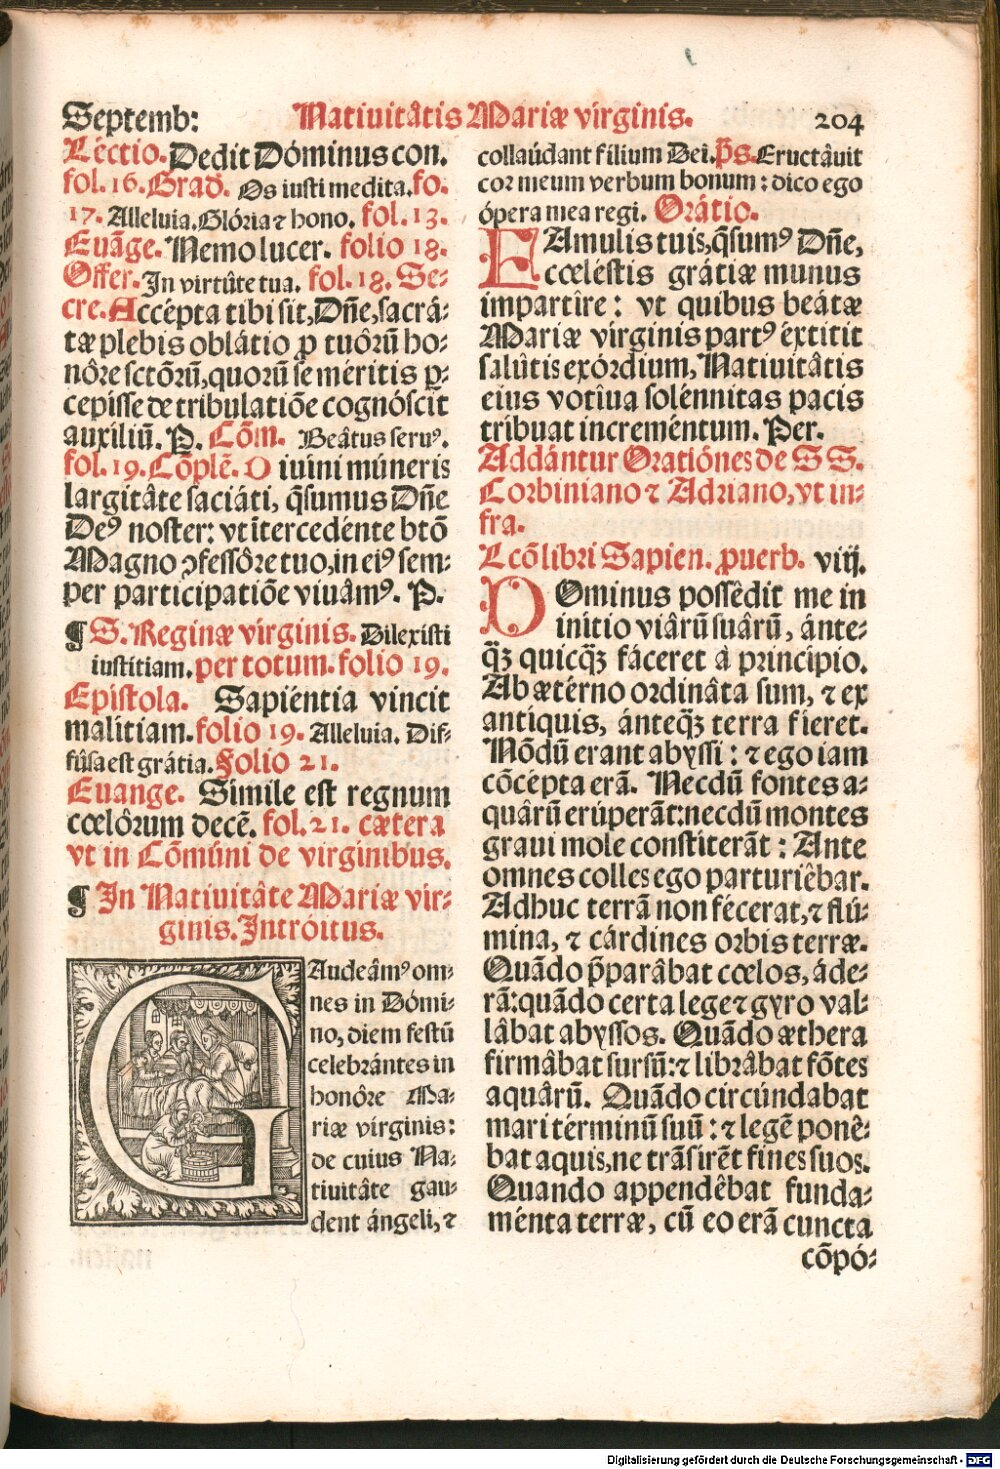 Septemb: Natiuitâtis Mariæ virginis. 204
Léctio. Dedit Dóminus con.
fol. 16. Grad. Os iusti medita. fo.
17. Alleluia. Glória ⁊ hono. fol. 13.
Euãge. Nemo lucer. folio 18.
Offer. In virtûte tua. fol. 18. Se-
cre. Accépta tibi sit, Dñe, sacrá-
tæ plebis oblátio ꝓ tuôrũ ho-
nôre sctõrũ, quorũ se méritis ꝑ-
cepisse de tribulatiõe cognóscit
auxiliũ. P. Cõm. Beâtus seruꝰ.
fol. 19. Cõplẽ. Diuini múneris
largitâte saciáti, q̃sumus Dñe
Deꝰ noster: vt ĩtercedénte btõ
Magno ꝯfessôre tuo, in eiꝰ sem-
per participatiõe viuâmꝰ. P.
¶ S. Reginæ virginis. Dilexisti
iustitiam. per totum. folio 19.
Epistola. Sapiéntia vincit
malitiam. folio 19. Alleluia. Dif-
fûsa est grátia. Folio 21.
Euange. Simile est regnum
cœlôrum decẽ. fol. 21. cætera
vt in Cõmúni de virginibus.
¶ In Natiuitâte Mariæ vir-
ginis. Intróitus.
GAudeâmꝰ om-
nes in Dómi-
no, diem festũ
celebrántes in
honôre Ma-
riæ virginis:
de cuius Na-
tiuitâte gau-
dent ángeli, ⁊
collaúdant filium Dei. p̃s. Eructâuit
cor meum verbum bonum: dico ego
ópera mea regi. Orátio.
FAmulis tuis, q̃sumꝰ Dñe,
cœléstis grátiæ munus
impartíre: vt quibus beátæ
Mariæ virginis partꝰ éxtitit
salûtis exórdium, Natiuitâtis
eius votîua solénnitas pacis
tribuat increméntum. Per.
Addántur Oratiónes de S S.
Corbiniano ⁊ Adriano, vt in-
fra.
Lcõ libri Sapien. ꝓuerb. viij.
DOminus possêdit me in
initio viârũ suârũ, ánte-
q̃ꝫ quicq̃ꝫ fáceret à princípio.
Ab ætérno ordinâta sum, ⁊ ex
antiquis, ánteq̃ꝫ terra fíeret.
Nõdũ erant abyssi: ⁊ ego iam
cõcépta erã. Necdũ fontes a-
quârũ erúperãt: necdũ montes
graui mole constíterãt: Ante
omnes colles ego parturiêbar.
Adhuc terrã non fécerat, ⁊ flú-
mina, ⁊ cárdines orbis terræ.
Quãdo p̃parâbat cœlos, áde-
rã: quãdo certa lege ⁊ gyro val-
lâbat abyssos. Quãdo æthera
firmâbat sursũ: ⁊ librâbat fõtes
aquârũ. Quãdo circúndabat
mari términũ suũ: ⁊ legẽ ponê-
bat aquis, ne trãsirẽt fines suos.
Quando appendêbat funda-
ménta terræ, cũ eo erã cuncta
cõpó-
Digitalisierung gefördert durch die Deutsche Forschungsgemeinschaft - DFG